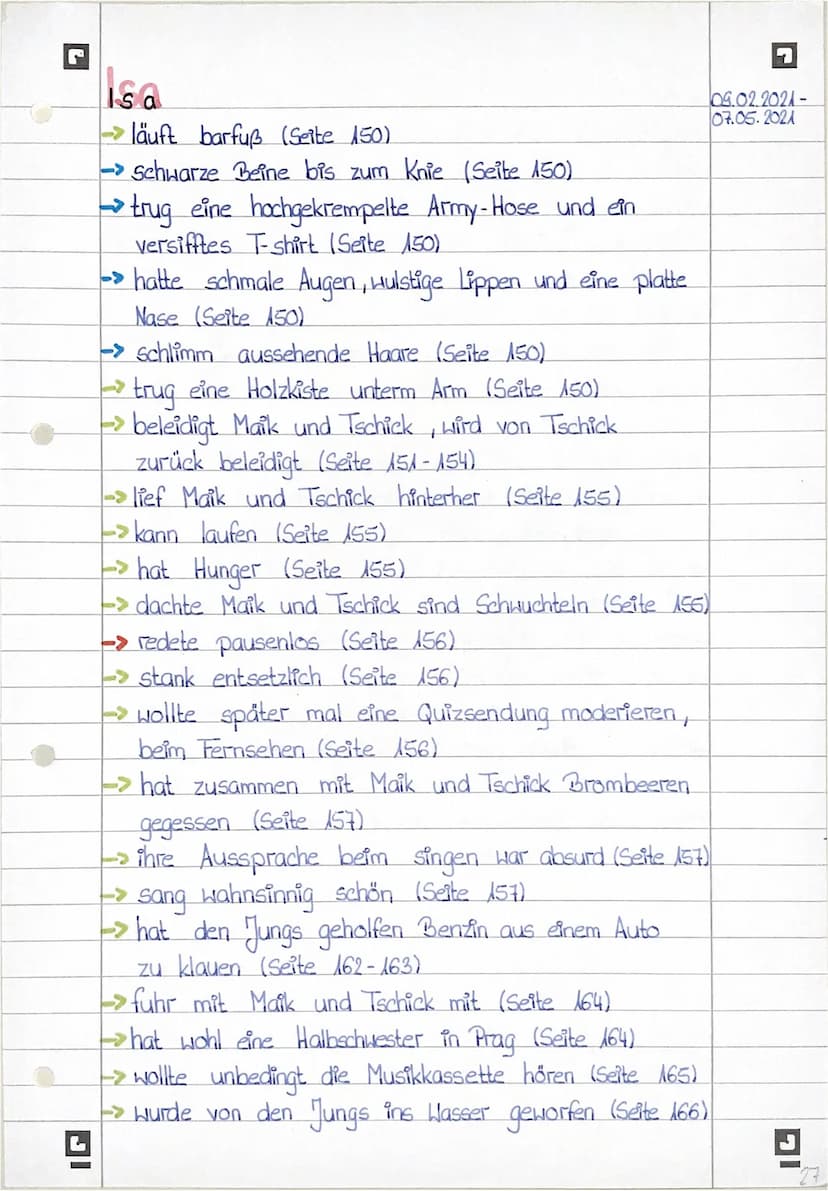 Isa
09.02.2021-
07.05.2021
-> läuft barfuß (Seite 150)
-> schwarze Beine bis zum Knie (Seite 150)
-> trug eine hochgekrempelte Army-Hose und ein
versifftes T-shirt (Seite 150)
-> hatte schmale Augen, wulstige Lippen und eine platte
Nase (Seite 150)
-> schlimm aussehende Haare (Seite 150)
-> trug eine Holzkiste unterm Arm (Seite 150)
-> beleidigt Maik und Tschick, wird von Tschick
zurück beleidigt (Seite 151-154)
-> lief Maik und Tschick hinterher (Seite 155)
-> kann laufen (Seite 155)
-> hat Hunger (Seite 155)
-> dachte Maik und Tschick sind Schwuchteln (Seite 155)
-> redete pausenlos (Seite 156)
-> stank entsetzlich (Seite 156)
-> wollte später mal eine Quizsendung moderieren,
beim Fernsehen (Seite 156)
-> hat zusammen mit Maik und Tschick Brombeeren
gegessen (Seite 157)
-> ihre Aussprache beim singen war absurd (Seite 157)
-> sang wahnsinnig schön (Seite 157)
-> hat den Jungs geholfen Benzin aus einem Auto
zu klauen (Seite 162-163)
-> fuhr mit Maik und Tschick mit (Seite 164)
-> hat wohl eine Halbschwester in Prag (Seite 164)
-> wollte unbedingt die Musikkassette hören (Seite 165)
-> wurde von den Jungs ins Wasser geworfen (Seite 166)
27